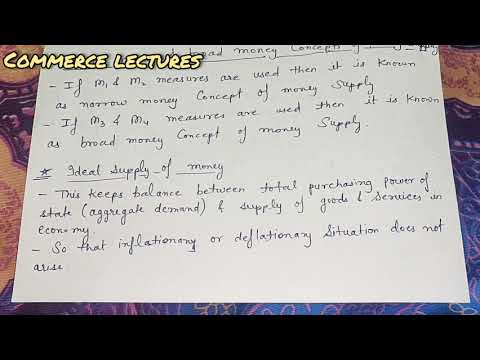 COMMERCE LECTURES
broad money Concepts of
- If M1 & M2 measures are used then it is known
as narrow money Concept of money Supply
- If M3 & M4 measures are used then it is known
as broad money Concept of money Supply
* Ideal Supply of money
- This keeps balance between total purchasing power of
state (aggregate demand) & supply of goods & services in
economy.
- So that inflationary or deflationary situation does not
arise